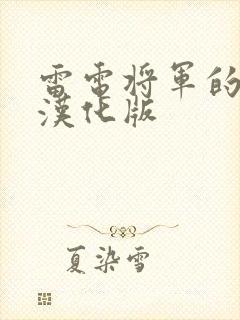 雷電将軍的
漢化版
夏染雪